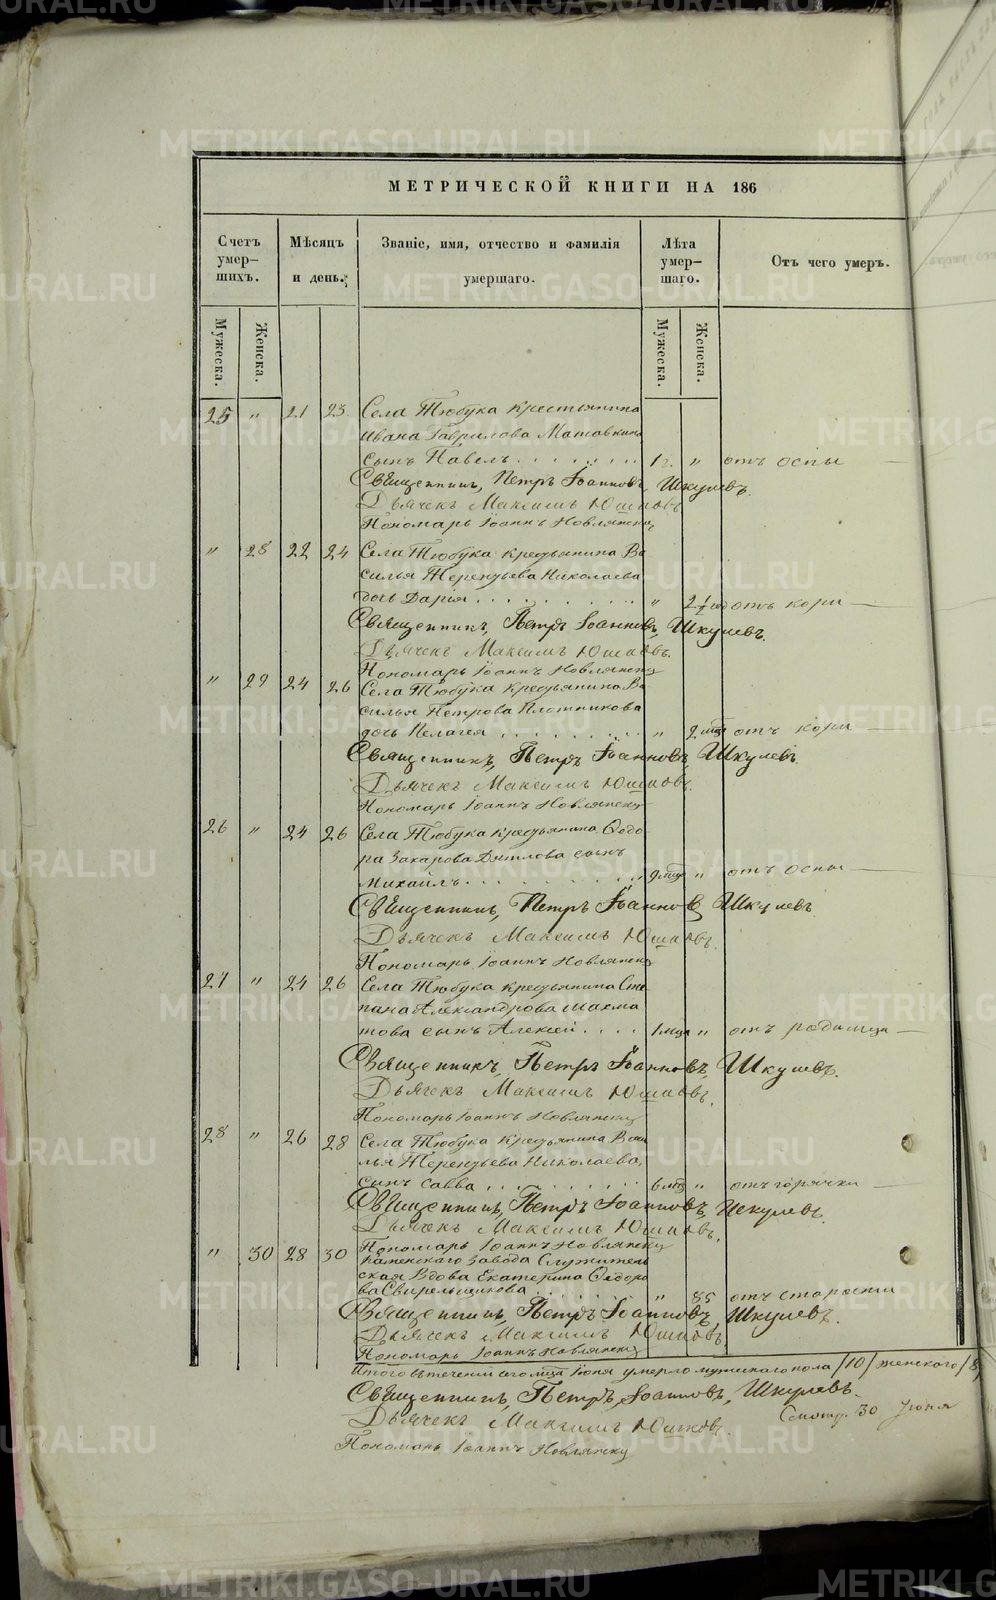 МЕТРИЧЕСКОЙ КНИГИ НА 186
Счетъ умер-шихъ.
Мѣсяцъ и день.
Званіе, имя, отчество и фамилія умершаго.
Лѣта умер-шаго.
Отъ чего умеръ.
Мужеска.
Женска.
Мужеска.
Женска.
25 " 21 23 Села Тюбука крестьянина
Ивана Гаврилова Матавкина
сынъ Павелъ . . . . . . . 1 г. " отъ оспы
Священникъ, Петръ Іоанновъ, Шкулевъ.
Дьячекъ Максимъ Юшковъ
Пономарь Іоаннъ Новлянску
" 28 22 24 Села Тюбука крестьянина Ва
силья Терентьева Николаева
дочь Дарья . . . . . . . . " 2½ год отъ кори
Священникъ, Петръ Іоанновъ, Шкулевъ.
Дьячекъ Максимъ Юшковъ.
Пономарь Іоаннъ Новлянску
" 29 24 26 Села Тюбука крестьянина Ва
силья Петрова Плотникова
дочь Пелагея . . . . . . . . " 2 мца отъ кори
Священникъ, Петръ Іоанновъ, Шкулевъ.
Дьячекъ Максимъ Юшковъ.
Пономарь Іоаннъ Новлянску
26 " 24 26 Села Тюбука крестьянина Ѳедо
ра Захарова Дятлова сынъ
Михайлъ . . . . . . . . 9 мцъ " отъ оспы
Священникъ, Петръ Іоанновъ, Шкулевъ
Дьячекъ Максимъ Юшковъ.
Пономарь Іоаннъ Новлянску
27 " 24 26 Села Тюбука крестьянина Сте
пана Александрова Шахма
това сынъ Алексѣй . . . . 1 мца " отъ родимца
Священникъ, Петръ Іоанновъ, Шкулевъ.
Дьячекъ Максимъ Юшковъ.
Пономарь Іоаннъ Новлянску
28 " 26 28 Села Тюбука крестьянина Васи
лья Терентьева Николаева,
сынъ Савва . . . . . . . . 6 мцъ " отъ горячки
Священникъ, Петръ Іоанновъ, Шкулевъ.
Дьячекъ Максимъ Юшковъ.
Пономарь Іоаннъ Новлянску
" 30 28 30 Каменскаго завода Служитель
ская Вдова Екатерина Ѳедоро
ва Свирельщикова . . . . . . " 85 отъ старости
Священникъ, Петръ Іоанновъ, Шкулевъ.
Дьячекъ Максимъ Юшковъ.
Пономарь Іоаннъ Новлянску
Итого въ теченіи сего мца Іюня умерло мужескаго пола /10/ женскаго /8/
Священникъ, Петръ, Іоанновъ, Шкулевъ.
Смотр. 30 Іюня
Дьячекъ Максимъ Юшковъ.
Пономарь Іоаннъ Новлянску
METRIKI.GASO-URAL.RU